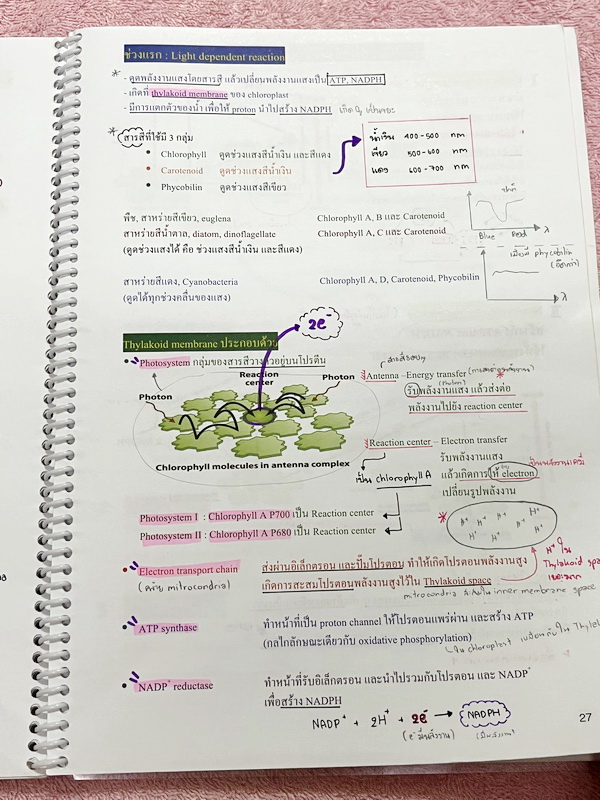 ช่วงแรก : Light dependent reaction
* - ดูดพลังงานแสงโดยสารสี แล้วเปลี่ยนพลังงานแสงเป็น ATP, NADPH
- เกิดที่ thylakoid membrane ของ chloroplast
- มีการแตกตัวของน้ำ เพื่อให้ proton นำไปสร้าง NADPH
* สารสีที่ใช้มี 3 กลุ่ม
• Chlorophyll ดูดช่วงแสงสีน้ำเงิน และสีแดง
• Carotenoid ดูดช่วงแสงสีน้ำเงิน
• Phycobilin ดูดช่วงแสงสีเขียว
น้ำเงิน 400-500 nm
เขียว 500-600 nm
แดง 600-700 nm
พืช, สาหร่ายสีเขียว, euglena Chlorophyll A, B และ Carotenoid
สาหร่ายสีน้ำตาล, diatom, dinoflagellate Chlorophyll A, C และ Carotenoid
(ดูดช่วงแสงได้ คือ ช่วงแสงสีน้ำเงิน และสีแดง)
ปกติ
Blue Red λ
เมื่อมี phycobilin
λ
สาหร่ายสีแดง, Cyanobacteria Chlorophyll A, D, Carotenoid, Phycobilin
(ดูดได้ทุกช่วงคลื่นของแสง)
2e⁻
Thylakoid membrane ประกอบด้วย
• Photosystem กลุ่มของสารสีวางตัวอยู่บนโปรตีน
Reaction
center
Photon
Photon
Chlorophyll molecules in antenna complex
Antenna – Energy transfer
(Photon)
รับพลังงานแสง แล้วส่งต่อ
พลังงานไปยัง reaction center
Reaction center – Electron transfer
รับพลังงานแสง
แล้วเกิดการให้ electron
เปลี่ยนรูปพลังงาน
เป็น chlorophyll A
Photosystem I : Chlorophyll A P700 เป็น Reaction center
Photosystem II : Chlorophyll A P680 เป็น Reaction center
* H⁺ H⁺ H⁺ H⁺ H⁺ H⁺ H⁺ H⁺
H⁺ ใน
Thylakoid
เยอะมาก
• Electron transport chain ส่งผ่านอิเล็กตรอน และปั๊มโปรตอน ทำให้เกิดโปรตอนพลังงานสูง
(คล้าย mitrocondria) เกิดการสะสมโปรตอนพลังงานสูงไว้ใน Thylakoid space
mitrocondria inner membrane space
• ATP synthase ทำหน้าที่เป็น proton channel ให้โปรตอนแพร่ผ่าน และสร้าง ATP
(กลไกลักษณะเดียวกับ oxidative phosphorylation)
ใน chloroplast
• NADP⁺ reductase ทำหน้าที่รับอิเล็กตรอน และนำไปรวมกับโปรตอน และ NADP⁺
เพื่อสร้าง NADPH
NADP⁺ + 2H⁺ + 2e⁻ → NADPH
27